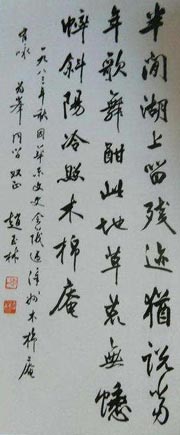 半闲湖上留残迹犹说当
年歌舞酣此地草荒無憔
悴斜陽冷照木棉庵
一九八三年秋因华东文史会议过漳州木棉庵
有咏 同学 正 趙玉林